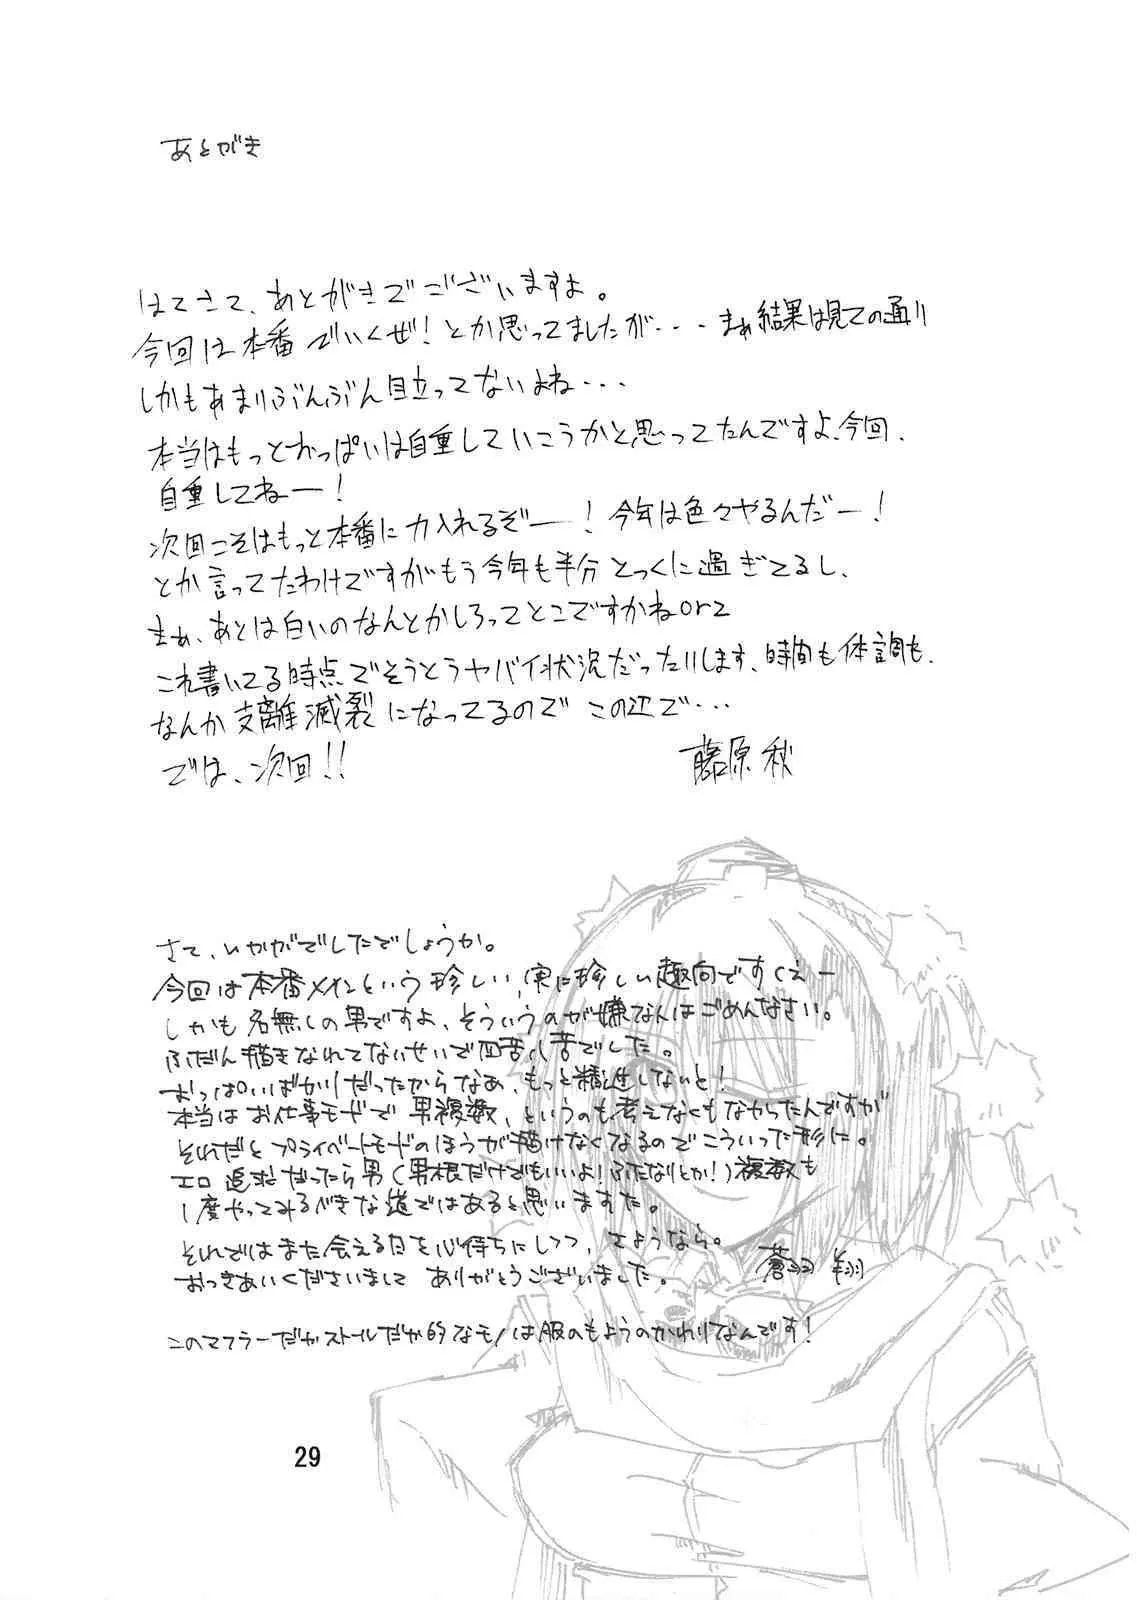 あとがき
はてさて、あとがきでございますよ。
今回は本番でいくぜ！とか思ってましたが・・・まぁ結果は見ての通り
しかもあまりぶんぶん目立ってないよね・・・
本当はもっとおっぱいは自重していこうかと思ってたんですよ、今回、
自重してねー！
次回こそはもっと本番に力入れるぞー！今年は色々やるんだー！
とか言ってたわけですがもう今年も半分とっくに過ぎてるし、
まぁ、あとは白いのなんとかしろってとこですかねorz
これ書いてる時点でそうとうヤバイ状況だったりします、時間も体調も、
なんか支離滅裂になってるのでこの辺で・・・
では、次回！！
藤原 秋
さて、いかがでしたでしょうか。
今回は本番メインという珍しい、実に珍しい趣向ですくえー
しかも名無しの男ですよ、そういうのが嫌なんはごめんなさい。
ふだん描きなれてないせいで四苦八苦でした。
おっぱいばかりだったからなぁ、もっと精進しないと！
本当はお仕事モードで男複数、というのも考えなくもなかったんですが
それだとプライベートモードのほうが描けなくなるのでこういった形に。
エロ追求だったら男（男根だけでもいいよ！ふたなりとか！）複数も
1度やってみるべきな道ではあると思いますた。
それではまた会える日を心待ちにしつつ、さようなら。
おつきあいくださいまして ありがとうございました。
蒼羽 翔
このマフラーだかストールだか的なモノは服のもようのかわりなんです！
29